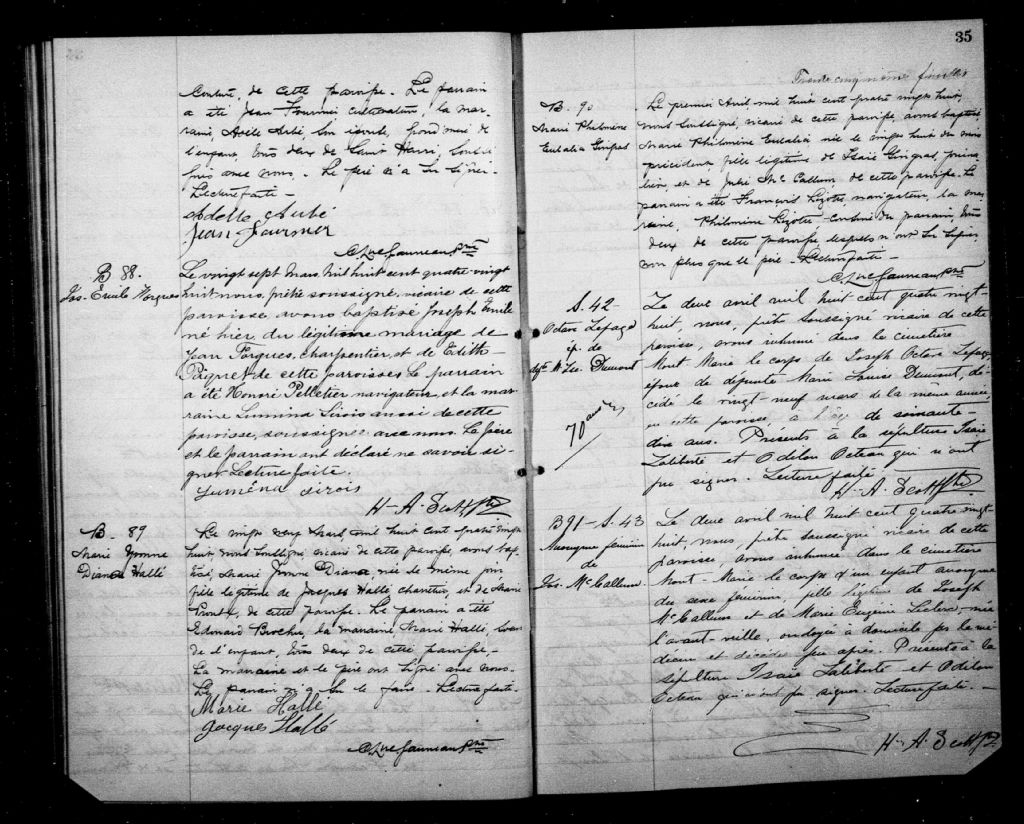 de cette paroisse. Le parrain
a été Jean Fournier cultivateur, la mar-
raine Adelle Aubé, son épouse, grand'mère de
l'enfant, tous deux de Saint Henri,
avec nous. Le père n'a su signer.
Lecture faite.
Adelle Aubé
Jean Fournier
Ptre
B 88.
Jos. Emile
Le vingt sept Mars, Mil huit cent quatre-vingt
huit nous, prêtre soussigné, vicaire de cette
paroisse, avons baptisé Joseph Emile
né hier, du légitime mariage de
Jean charpentier, et de Edith
de cette paroisse. Le parrain
a été Honoré Pelletier navigateur, et la mar-
raine Lumina Sirois aussi de cette
paroisse, soussignée avec nous. Le père
et le parrain ont déclaré ne savoir si-
gner. Lecture faite.
Luména Sirois
H-A. Scott Ptre
B. 89
Marie Yvonne
Diana Hallé
Le vingt sept Mars, mil huit cent quatre vingt
huit nous soussigné, vicaire de cette paroisse, avons bap-
tisé, Marie Yvonne Diana née le même jour
fille légitime de Jacques Hallé charretier, et de Marie
de cette paroisse. Le parrain a été
Edouard Brochu, la marraine, Marie Hallé,
de l'enfant, tous deux de cette paroisse.
La marraine et le père ont signé avec nous.
Le parrain n'a su le faire. Lecture faite.
Marie Hallé
Jacques Hallé
Ptre
35
Trente cinquième feuillet
B. 90
Marie Philomène
Eutalia Gingras
Le premier Avril, mil huit cent quatre vingt huit,
nous soussigné, vicaire de cette paroisse, avons baptisé
Marie Philomène Eutalia née le vingt huit du mois
précédent, fille légitime de Isaïe Gingras,
et de Julie Mc Callum, de cette paroisse. Le
parrain a été François Lizotte, navigateur, la mar-
raine, Philomène Lizotte cousine du parrain, tous
deux de cette paroisse lesquels n'ont su signer
non plus que le père. Lecture faite.
Ptre
S. 42
Octave Lefage
ép. de
M. Lse. Dumont
70 ans
Le deux avril mil huit cent quatre vingt-
huit, nous, prêtre soussigné vicaire de cette
paroisse, avons inhumé dans le cimetière
Mont Marie le corps de Joseph Octave Lefage
époux de défunte Marie Louise Dumont, dé-
cédé le vingt-neuf mars de la même année,
en cette paroisse à l'âge de soixante-
dix ans. Présents à la sépulture Isaïe
Laliberté et Odilon Octeau qui n'ont
pu signer. Lecture faite.
H-A. Scott Ptre
B 91 - S. 43
Anonyme féminin
de
Jos. McCallum
Le deux avril mil huit cent quatre vingt-
huit, nous, prêtre soussigné vicaire de cette
paroisse, avons inhumé dans le cimetière
Mont-Marie le corps d'un enfant anonyme
du sexe féminin, fille légitime de Joseph
McCallum et de Marie Eugénie Leclerc, née
l'avant-veille, ondoyée à domicile par le mé-
decin et décédée peu après. Présents à la
sépulture Isaïe Laliberté et Odilon
Octeau qui n'ont pu signer. Lecture faite.
H-A. Scott Ptre